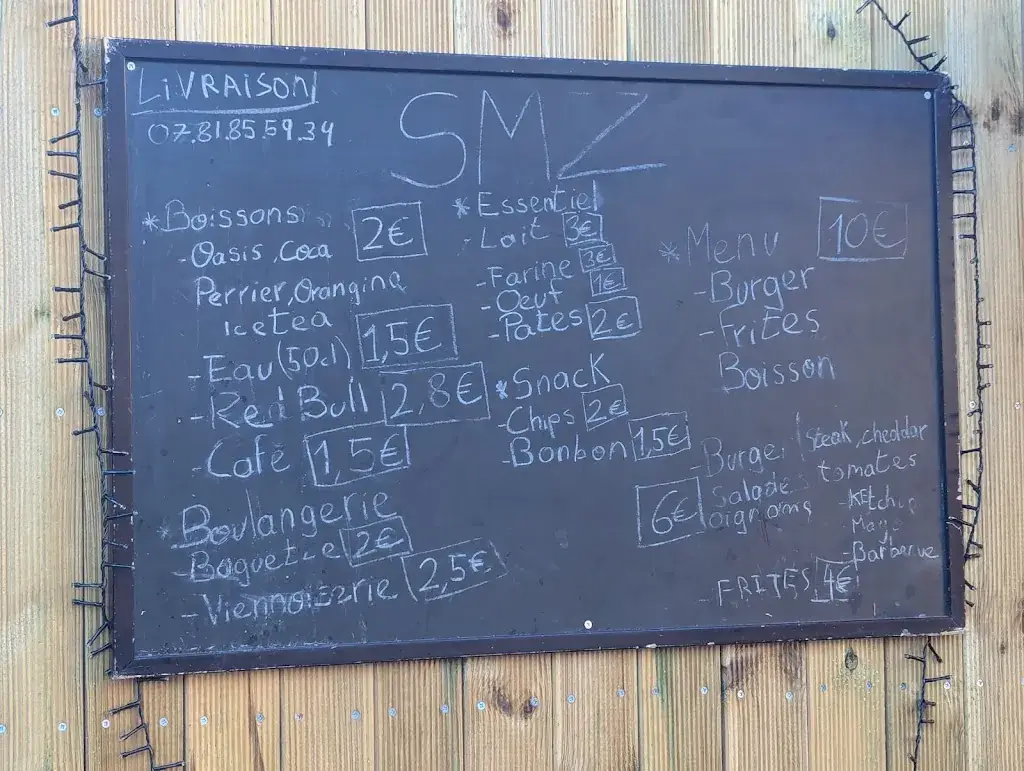 LiVRAISON
07.81.85.59.34
SMZ
*Boissons 2€
-Oasis, Coca
Perrier, Orangina
icetea
-Eau (50cl) 1,5€
-Red Bull 2,8€
-Café 1,5€
*Boulangerie
-Baguette 2€
-Viennoiserie 2,5€
*Essentiel
-Lait 3€
-Farine 3€
-Oeuf 1€
-Pates 2€
*Snack
-Chips 2€
-Bonbon 1,5€
*Menu 10€
-Burger
-Frites
Boisson
-Burger (Steak, cheddar
6€ Salades tomates
oignoms -Ketchup
Mayo
-Barbecue
-FRITES 4€